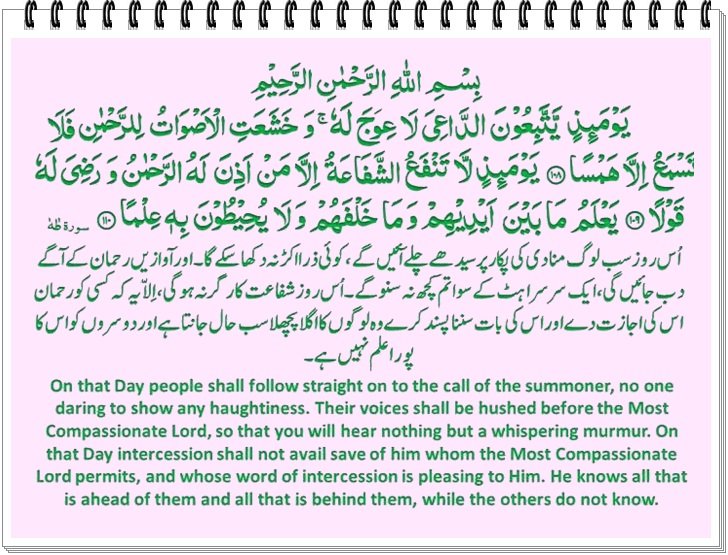 بِسْمِ اللهِ الرَّحْمٰنِ الرَّحِيْمِ
يَوْمَئِذٍ يَّتَّبِعُوْنَ الدَّاعِيَ لَا عِوَجَ لَهٗ ۚ وَ خَشَعَتِ الْاَصْوَاتُ لِلرَّحْمٰنِ فَلَا
تَسْمَعُ اِلَّا هَمْسًا ﴿۱۰۸﴾ يَوْمَئِذٍ لَّا تَنْفَعُ الشَّفَاعَةُ اِلَّا مَنْ اَذِنَ لَهُ الرَّحْمٰنُ وَ رَضِيَ لَهٗ
قَوْلًا ﴿۱۰۹﴾ يَعْلَمُ مَا بَيْنَ اَيْدِيْهِمْ وَ مَا خَلْفَهُمْ وَ لَا يُحِيْطُوْنَ بِهٖ عِلْمًا ﴿۱۱۰﴾ سورة طٰهٰ
اُس روز سب لوگ منادی کی پکار پر سیدھے چلے آئیں گے، کوئی ذرا اکڑ نہ دکھا سکے گا۔ اور آوازیں رحمان کے آگے
دب جائیں گی، ایک سرسراہٹ کے سوا تم کچھ نہ سنو گے۔ اُس روز شفاعت کارگر نہ ہوگی، اِلّا یہ کہ کسی کو رحمان
اس کی اجازت دے اور اس کی بات سننا پسند کرے وہ لوگوں کا اگلا پچھلا سب حال جانتا ہے اور دوسروں کو اس کا
پورا علم نہیں ہے۔
On that Day people shall follow straight on to the call of the summoner, no one
daring to show any haughtiness. Their voices shall be hushed before the Most
Compassionate Lord, so that you will hear nothing but a whispering murmur. On
that Day intercession shall not avail save of him whom the Most Compassionate
Lord permits, and whose word of intercession is pleasing to Him. He knows all that
is ahead of them and all that is behind them, while the others do not know.